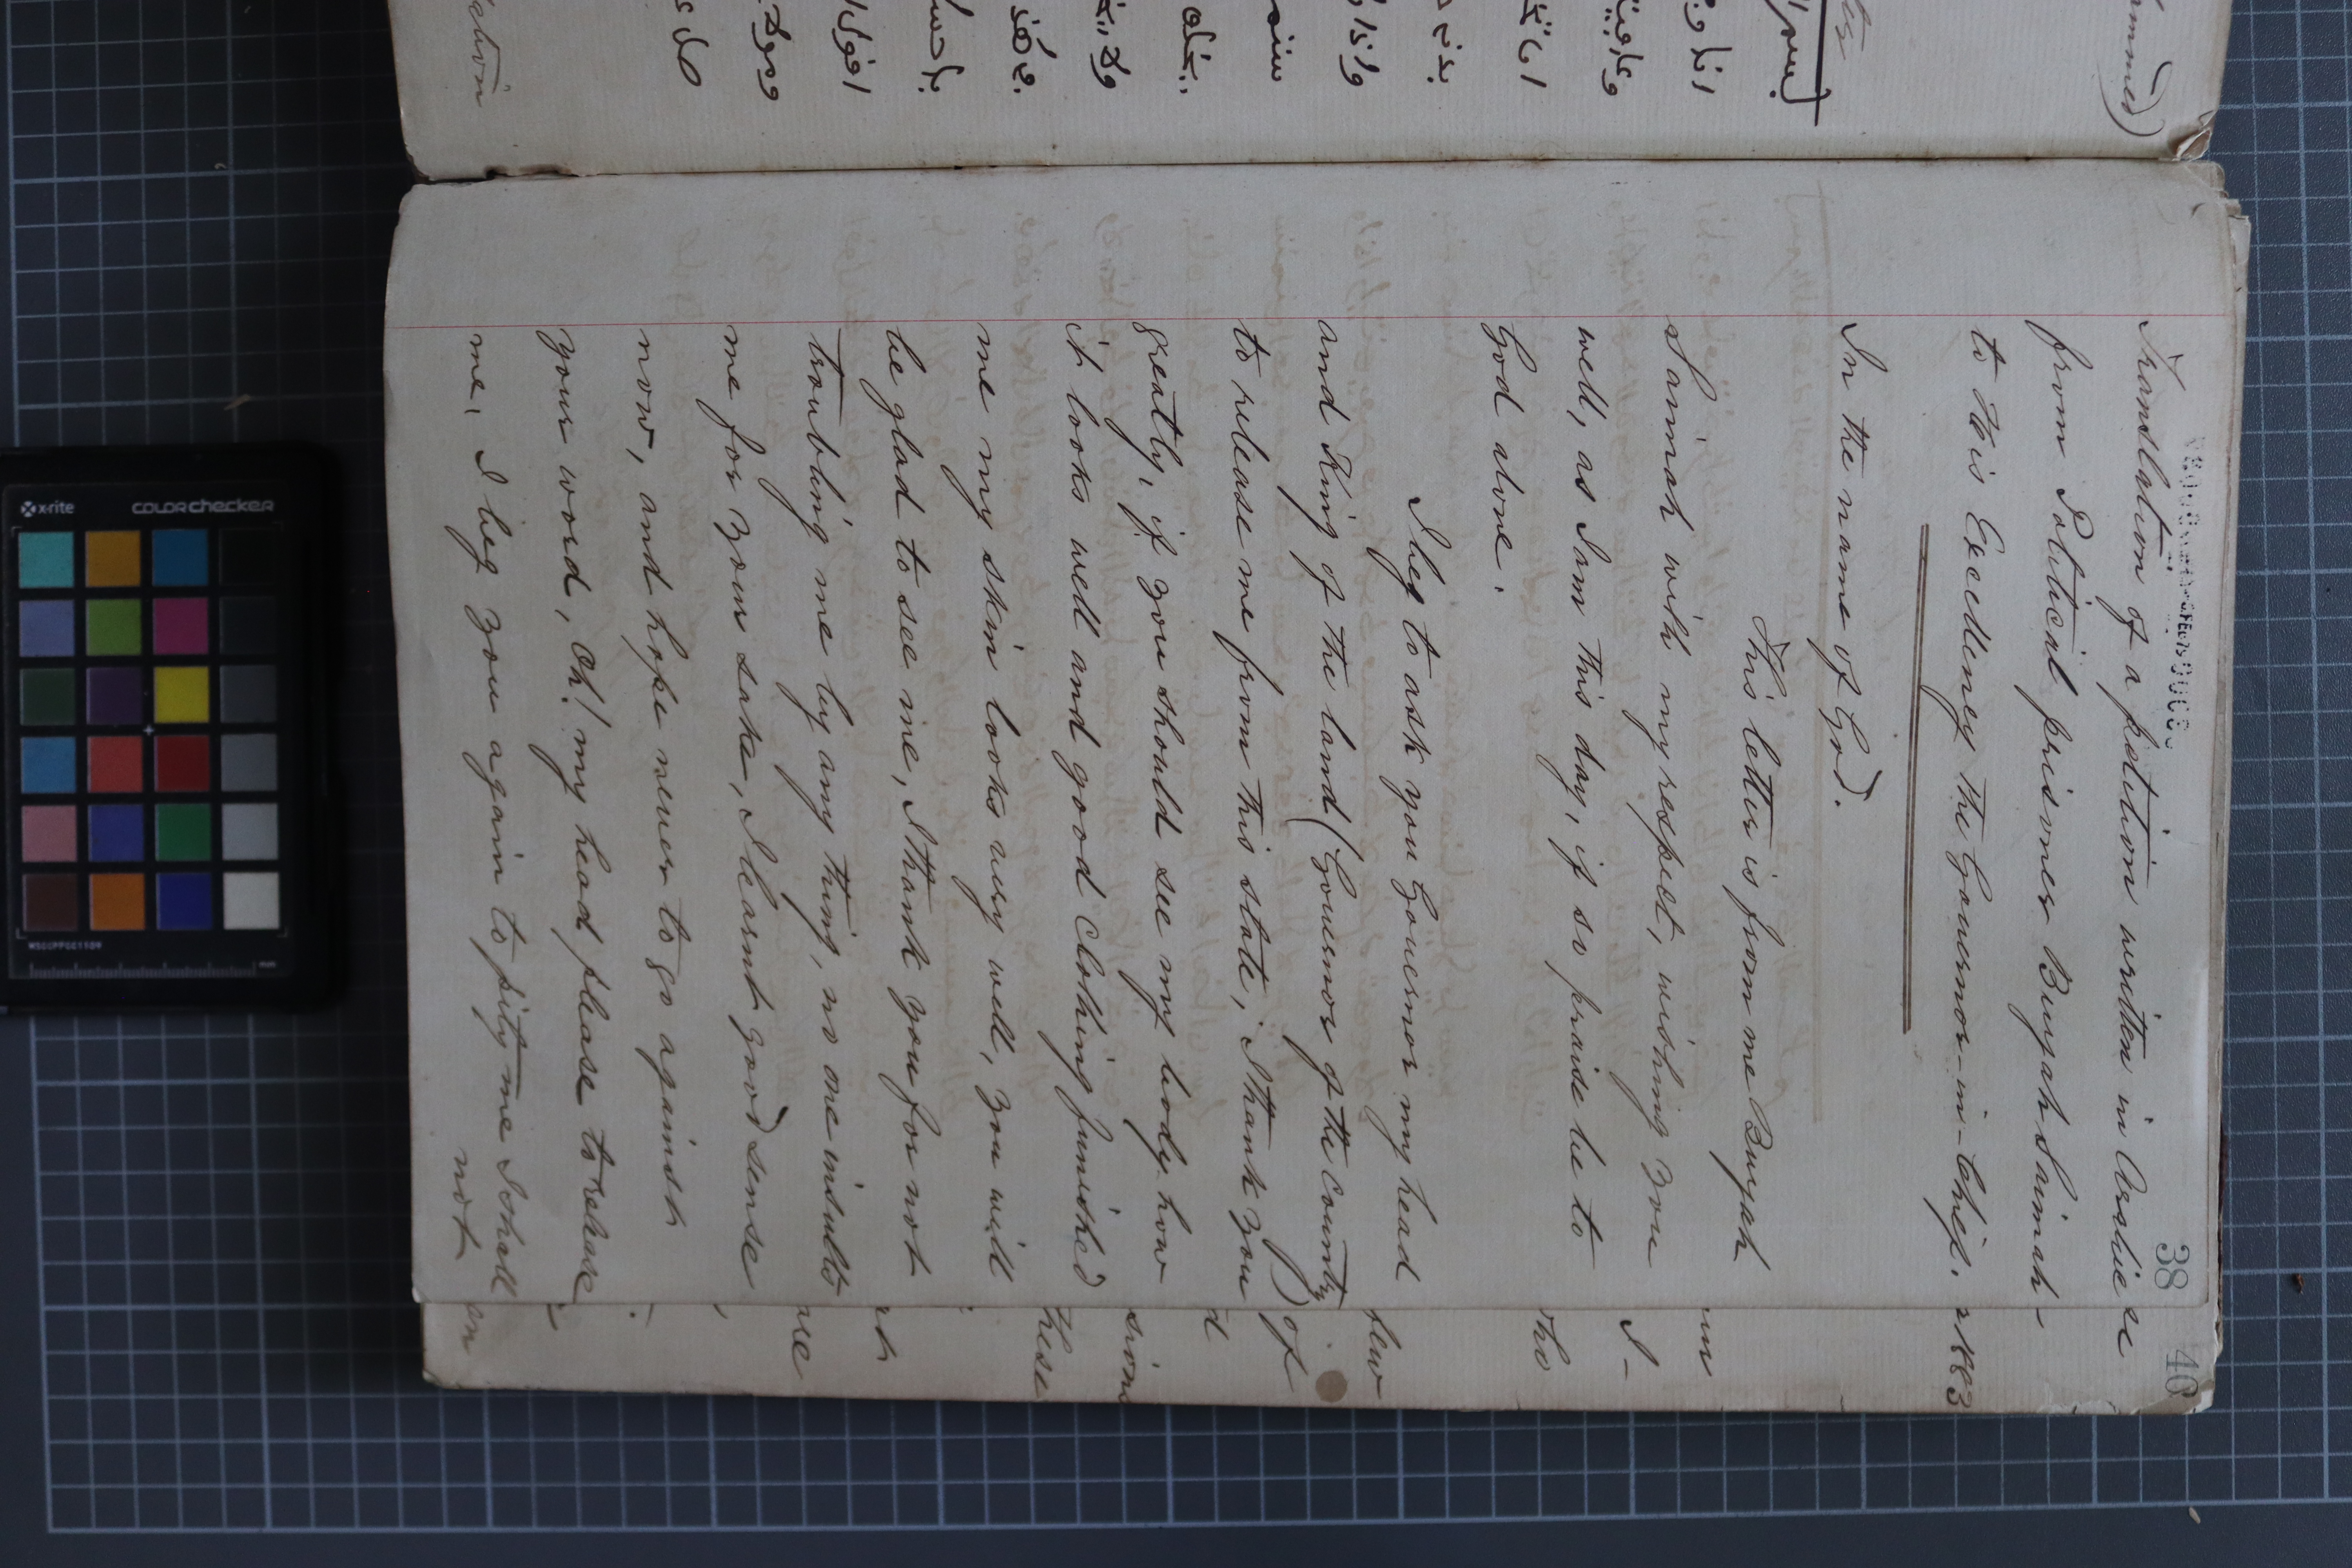 38
Translation of a petition written in Arabic
from Political prisoner Buyah Sannah-
to His Excellency the Governor-in-Chief.
In the name of God.
This letter is from me Buyah
Sannah with my respect, wishing you
well, as I am this day, if so praise be to
God alone.
I beg to ask you Governor my head
and King of the land (Governor of the County) of
to release me from this state, I thank you
greatly, if you should see my body how
it looks well and good clothing furnished
me my skin looks very well, you will
be glad to see me, I thank you for not
troubling me by any thing, no one insults
me for your sake, I learnt good sense
now, and hope never to go against
your word, Oh! my head please to release
me, I beg you again to pity me I shall
not
40
1883
I-
who
few
d
sion
these
are
lation
x-rite
colorchecker
MSCCPPCC1109
mm